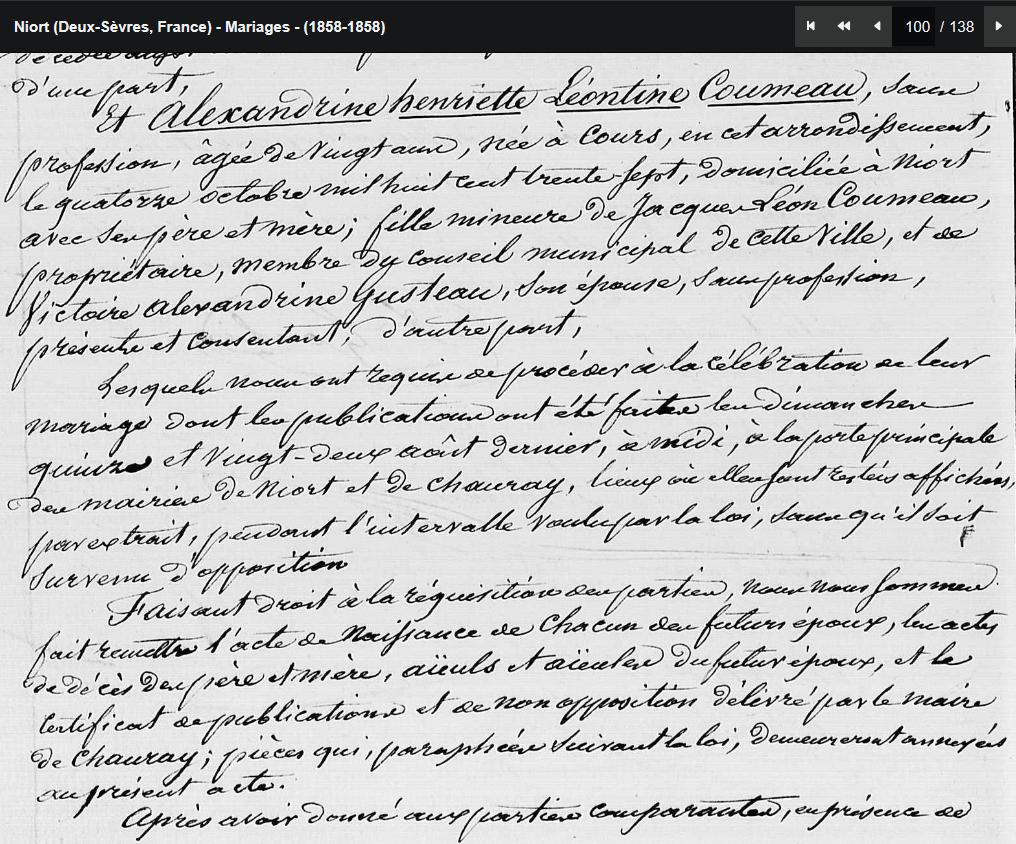 Niort (Deux-Sèvres, France) - Mariages - (1858-1858)
100 / 138
décédé
d'une part,
Et Alexandrine henriette Léontine Coumeau, sans
profession, âgée de Vingt ans, née à Cours, en cet arrondissement,
le quatorze octobre mil huit cent trente sept, domiciliée à Niort
avec ses père et mère; fille mineure de Jacques Léon Coumeau,
propriétaire, membre du Conseil municipal de cette Ville, et de
Victoire Alexandrine Gusteau, son épouse, sans profession,
présents et consentant, d'autre part,
Lesquels nous ont requis de procéder à la célébration de leur
mariage dont les publications ont été faites les dimanches
quinze et Vingt-deux août dernier, à midi, à la porte principale
des mairies de Niort et de Chauray, lieux où elles sont restées affichées,
par extrait, pendant l'intervalle voulu par la loi, sans qu'il soit
survenu d'opposition
Faisant droit à la réquisition des parties, nous nous sommes
fait remettre l'acte de Naissance de Chacun des futurs époux, les actes
de décès des père et mère, aïeuls et aïeules du futur époux, et le
Certificat de publications et de non opposition délivré par le maire
de Chauray; pièces qui, paraphées suivant la loi, demeureront annexées
au présent acte.
Après avoir donné aux parties comparantes, en présence de